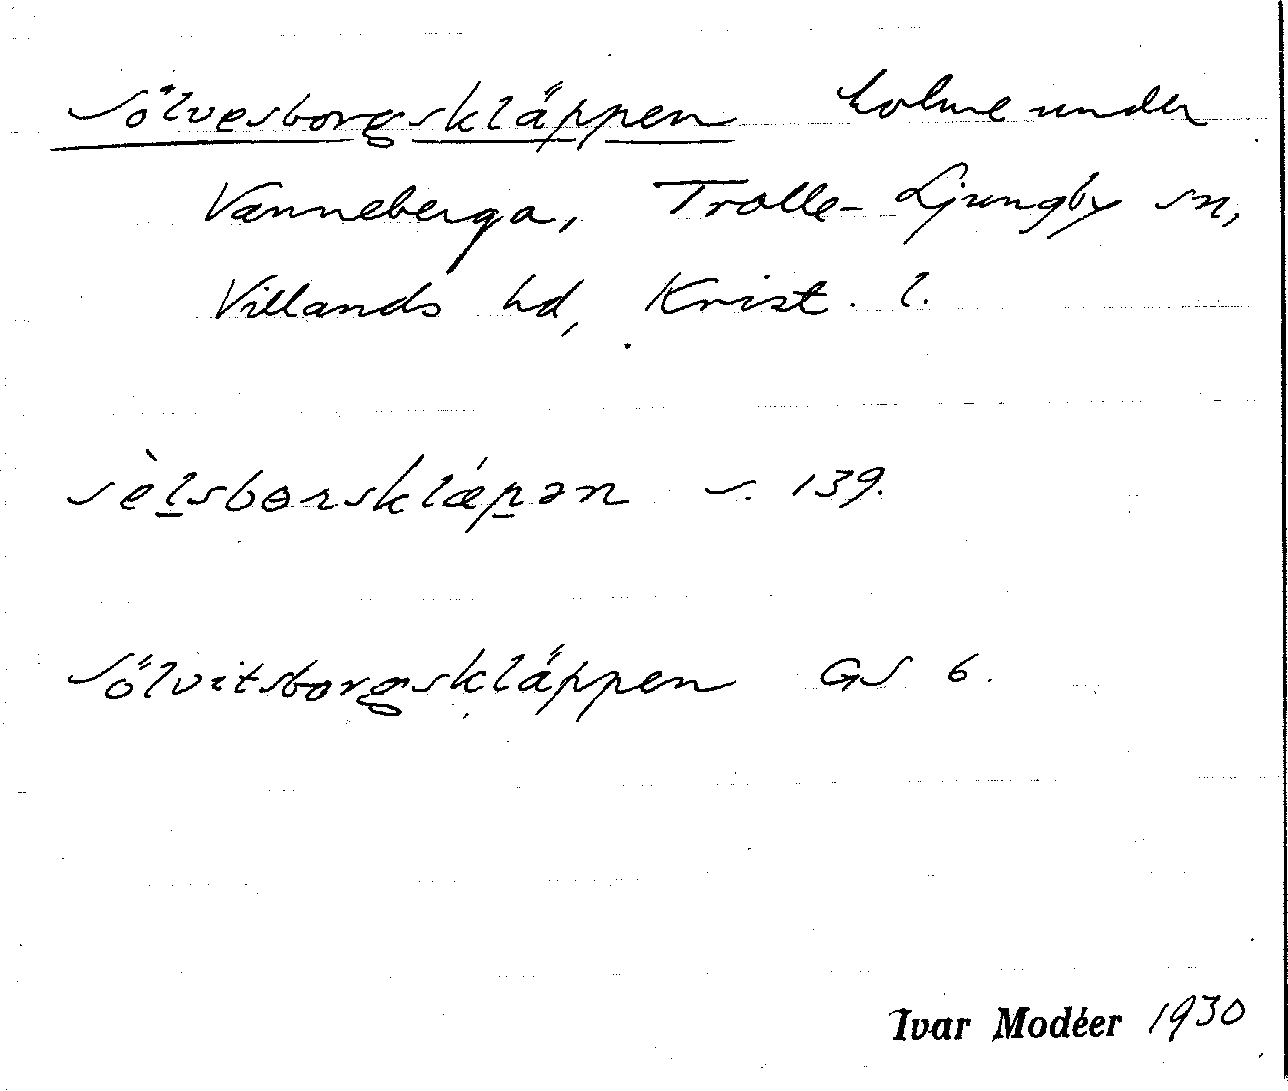 Sölvesborgskläppen holme under
Vanneberga, Trolle-Ljungby sn,
Villands hd, Krist. l.
sèl̲sbɵrsklǽp̲ən s. 139.
Sölvitsborgskläppen GS 6.
Ivar Modéer 1930